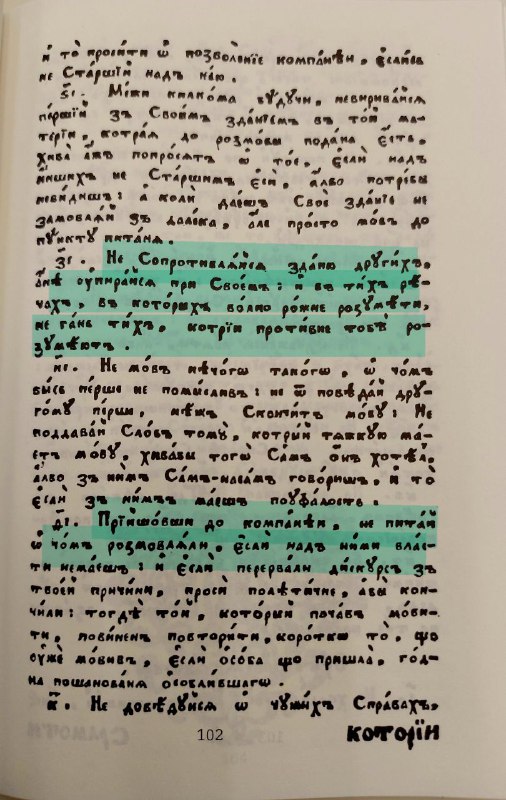 и҆ то̀ проси́ти ѿ позволе́нїе компа́нѣи, є҆сли́бъ
не Ста́ршїй надъ не́ю.
ѕ҃і. Ме́жи килко́ма бу́дучи, невирива́йся
пе́ршїй зъ Свои́мъ зда́нїемъ въ то́й ма-
те́рїи, котра́я до розмо́вы пода́на є҆́стъ,
хиба̀ а҆́жъ попро́сятъ ѿ то́е, є҆слѝ надъ
и҆́ншихъ не Ста́ршимъ є҆сѝ, а҆́лбо потре́бы
неви́дишъ: а҆ колѝ дае́шъ Своѐ зда́нїе не
замовля́й зъ дале́ка, а҆́ле про́сто мо́въ до
пу́нкту пита́ня.
з҃і. Не Сопротивля́йся зда́ню други́хъ,
а҆нѣ̀ ѹ҆пира́йся при Свое́мъ: и҆ въ ти́хъ рѣ́-
чахъ, въ кото́рыхъ во́лно ро́жне розумѣ́ти,
не га́нь ти́хъ, котрі́и проти́вне тобѣ̀ ро-
зумѣ́ютъ.
и҃і. Не мо́въ нѣ́чого тако́гѡ, ѿ чо́мъ
бы́сь пе́рше не помы́сливъ: не ѿповѣда́й дру-
го́му пе́рши, нѣ́жъ Ско́нчитъ мо́ву: Не
поддава́й Сло́въ тому̀, котры́й тя́жкую ма́-
етъ мо́ву, хиба́бы тогѡ̀ Са́мъ ѻ҆́нъ хотѣ́лъ,
а҆́лбо зъ ни́мъ Са́мъ-наса́мъ гово́ришъ, и҆ то̀
є҆слѝ зъ ни́мъ ма́ешъ поуфа́лость.
ѳ҃і. Прїйшо́вши до компа́нѣи, не пита́й
ѿ чо́мъ розмовля́ли, є҆слѝ надъ ни́ми вла́с-
ти нема́ешъ: и҆ є҆слѝ перерва́ли ди́скурсъ зъ
твое́й причи́ни, просѝ полѣти́чне, а҆бы̀ кон-
чи́ли: тогдѣ̀ то́й, кото́рый поча́въ мо́ви-
ти, пови́ненъ повтори́ти, ко́роткѡ то̀, що
ѹ҆жѐ мо́вивъ, є҆слѝ ѻ҆со́ба що пришла̀, го́д-
на пошанова́ня ѻ҆собли́вшагѡ.
к҃. Не довѣ́дуйся ѿ чужи́хъ Спра́вахъ,
102
кото́рїи